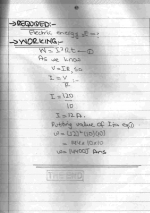 →REQUIRED:-
Electric energy = ?
→WORKING:-
W = I²Rt →①
As we know
V=IR, so
I = V
R
I = 120
10
I = 12A
Putting value of I in eq①
W = (12)²(10)(10)
= 144 x 10x10
W= 14400J Ans